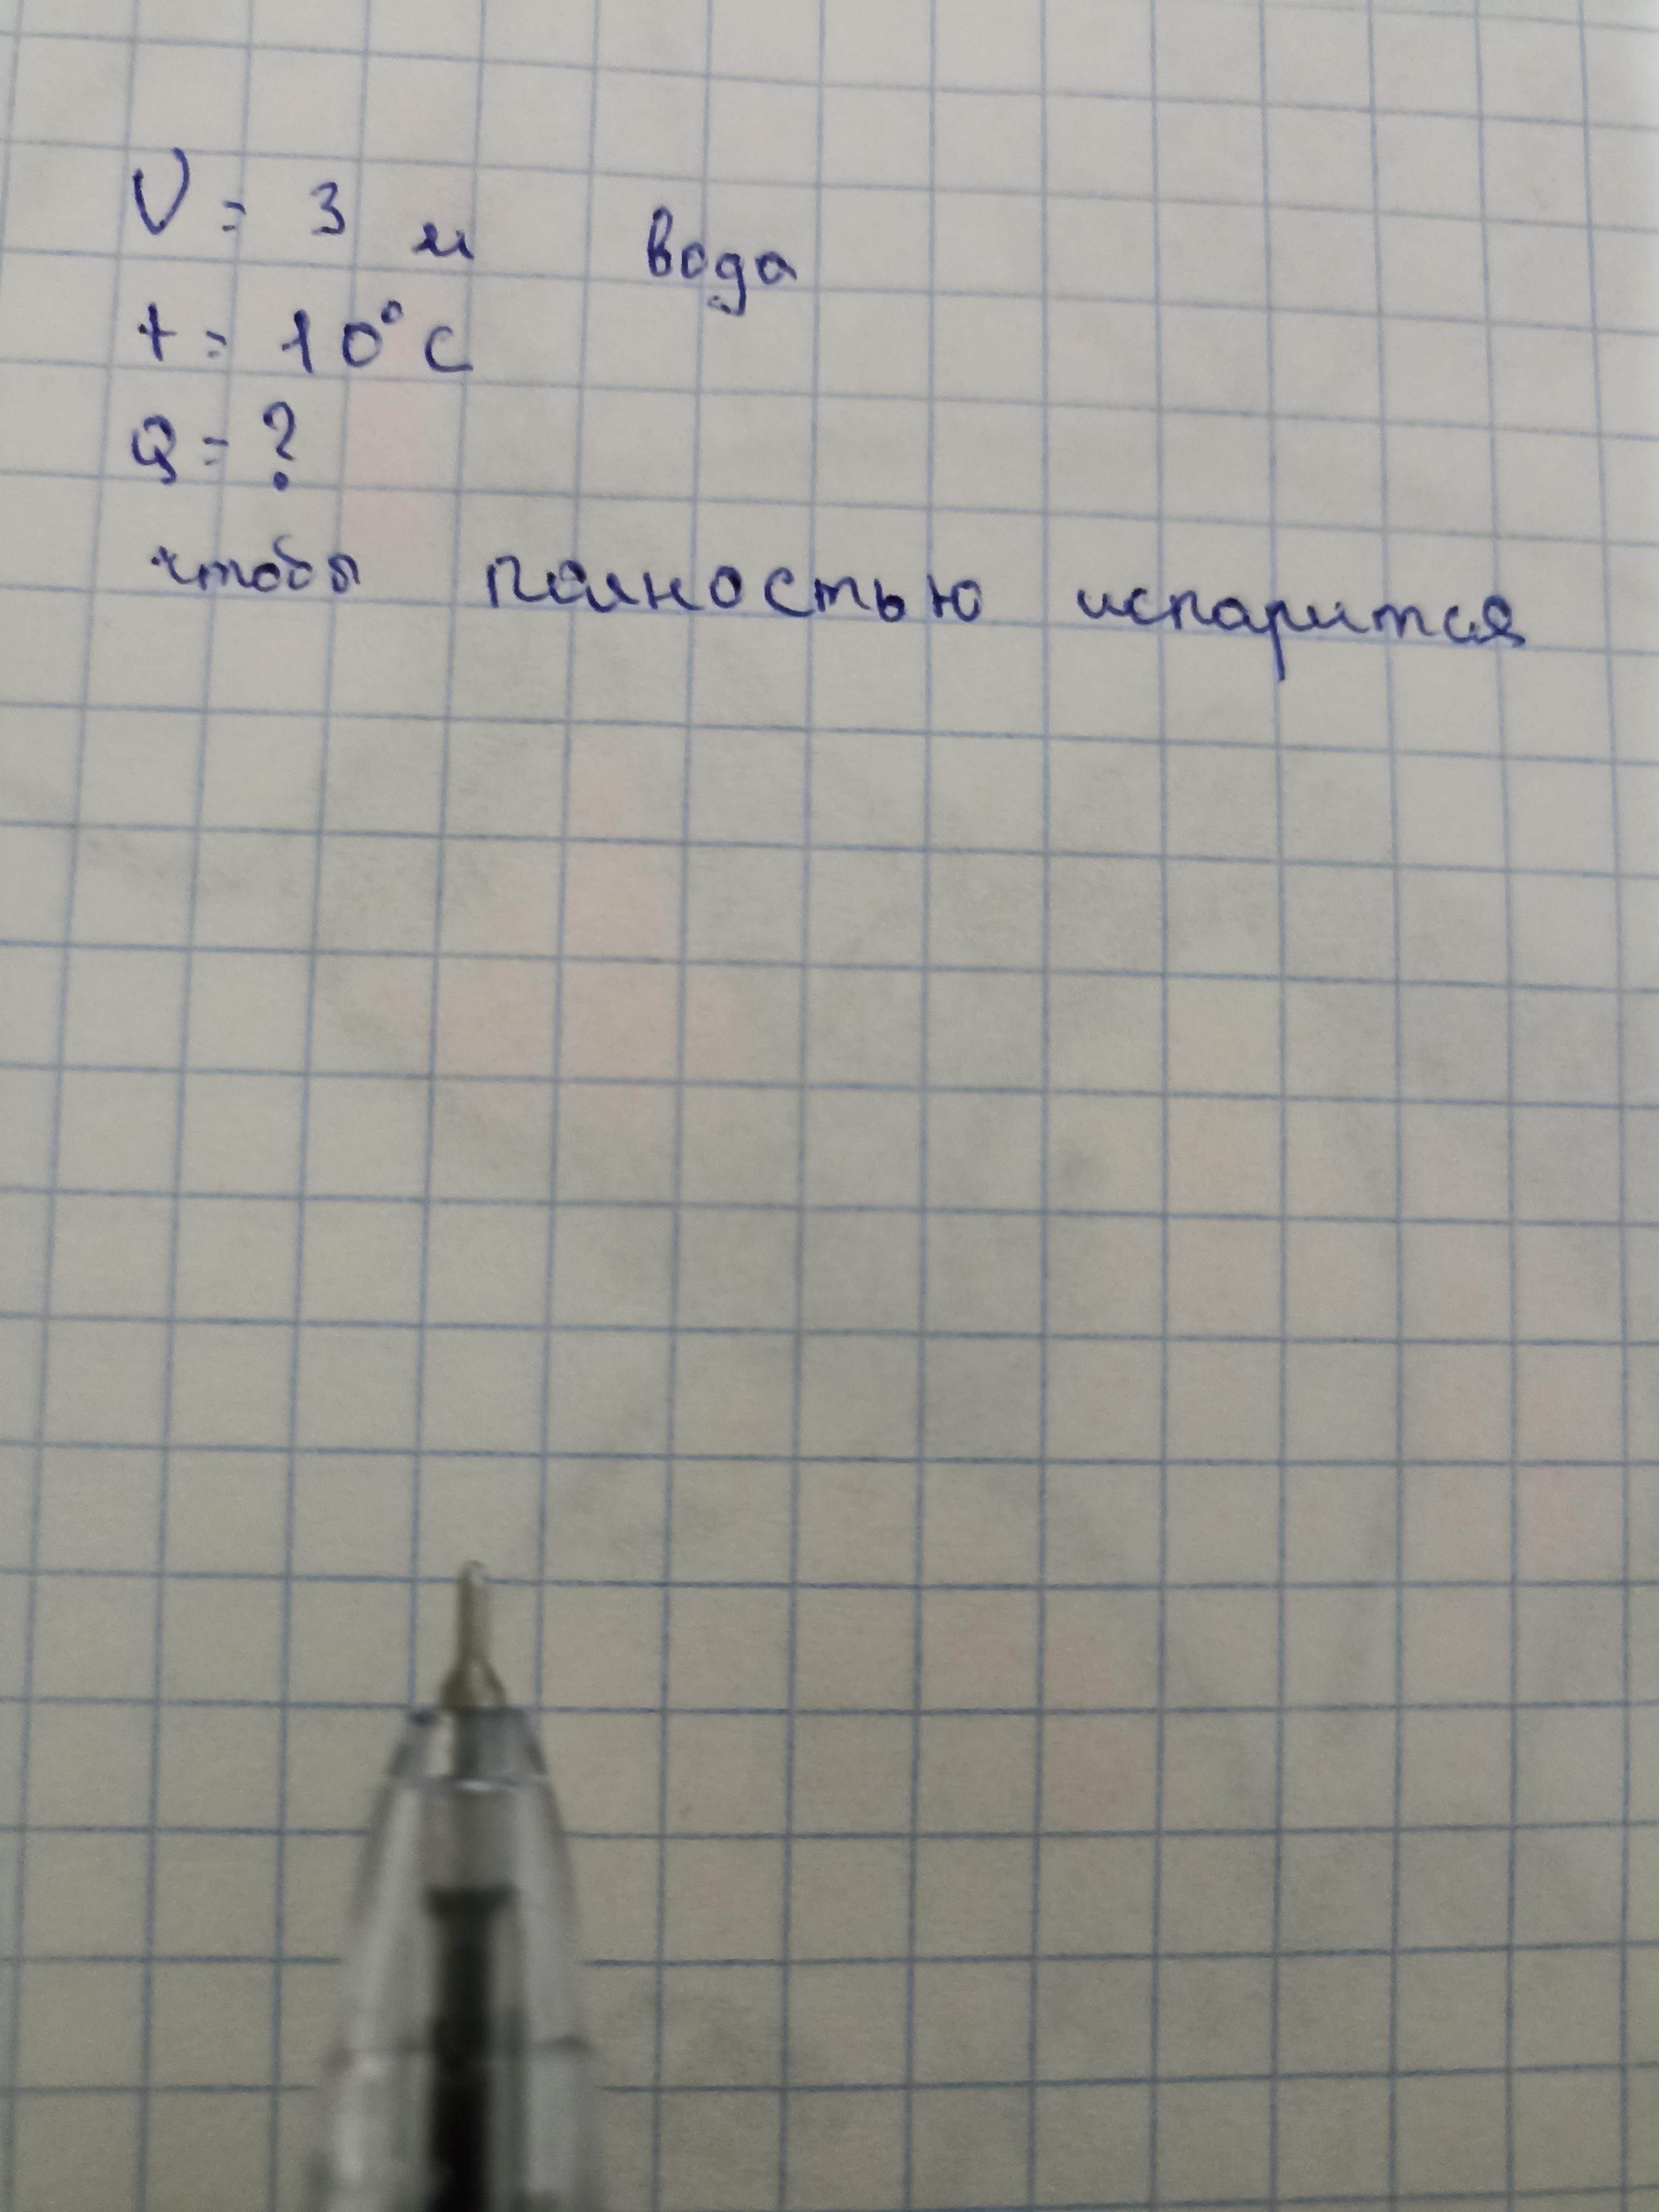 V = 3 л вода
t = 10°C
Q = ?
чтобы полностью испарится